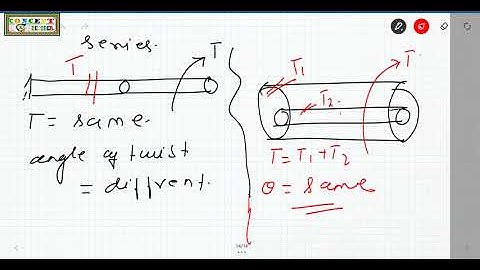 CONCEPT
series.
T
T
T = same.
angle of twist
= diffrent.
T1
T2.
T
T = T1 + T2
θ = same